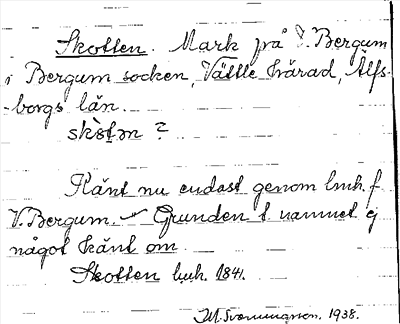 Skotten. Mark på V. Bergum
i Bergum socken, Vättle härad, Älfs-
-borgs län.
skòtən ?
Känt nu endast genom lmh. f
V. Bergum. — Grunden t. namnet ej
något känt om.
Skotten lmh. 1841.
1938.